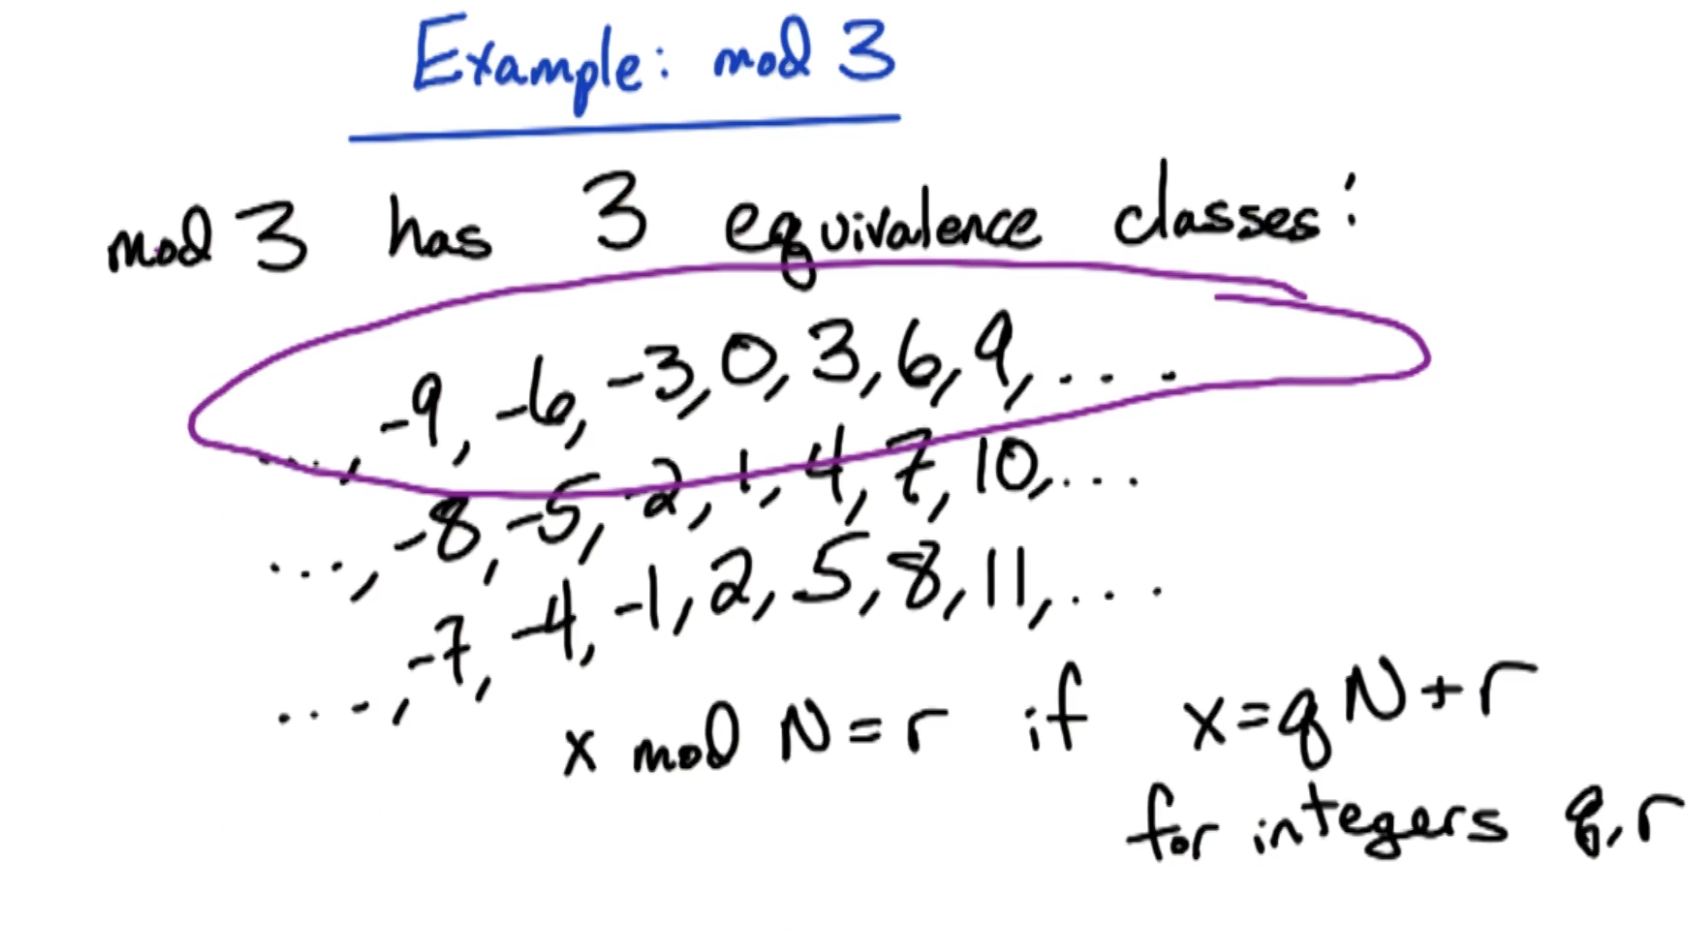 Example: mod 3
mod 3 has 3 equivalence classes:
..., -9, -6, -3, 0, 3, 6, 9, ...
..., -8, -5, -2, 1, 4, 7, 10, ...
..., -7, -4, -1, 2, 5, 8, 11, ...
x mod N = r if x = qN + r
for integers q, r